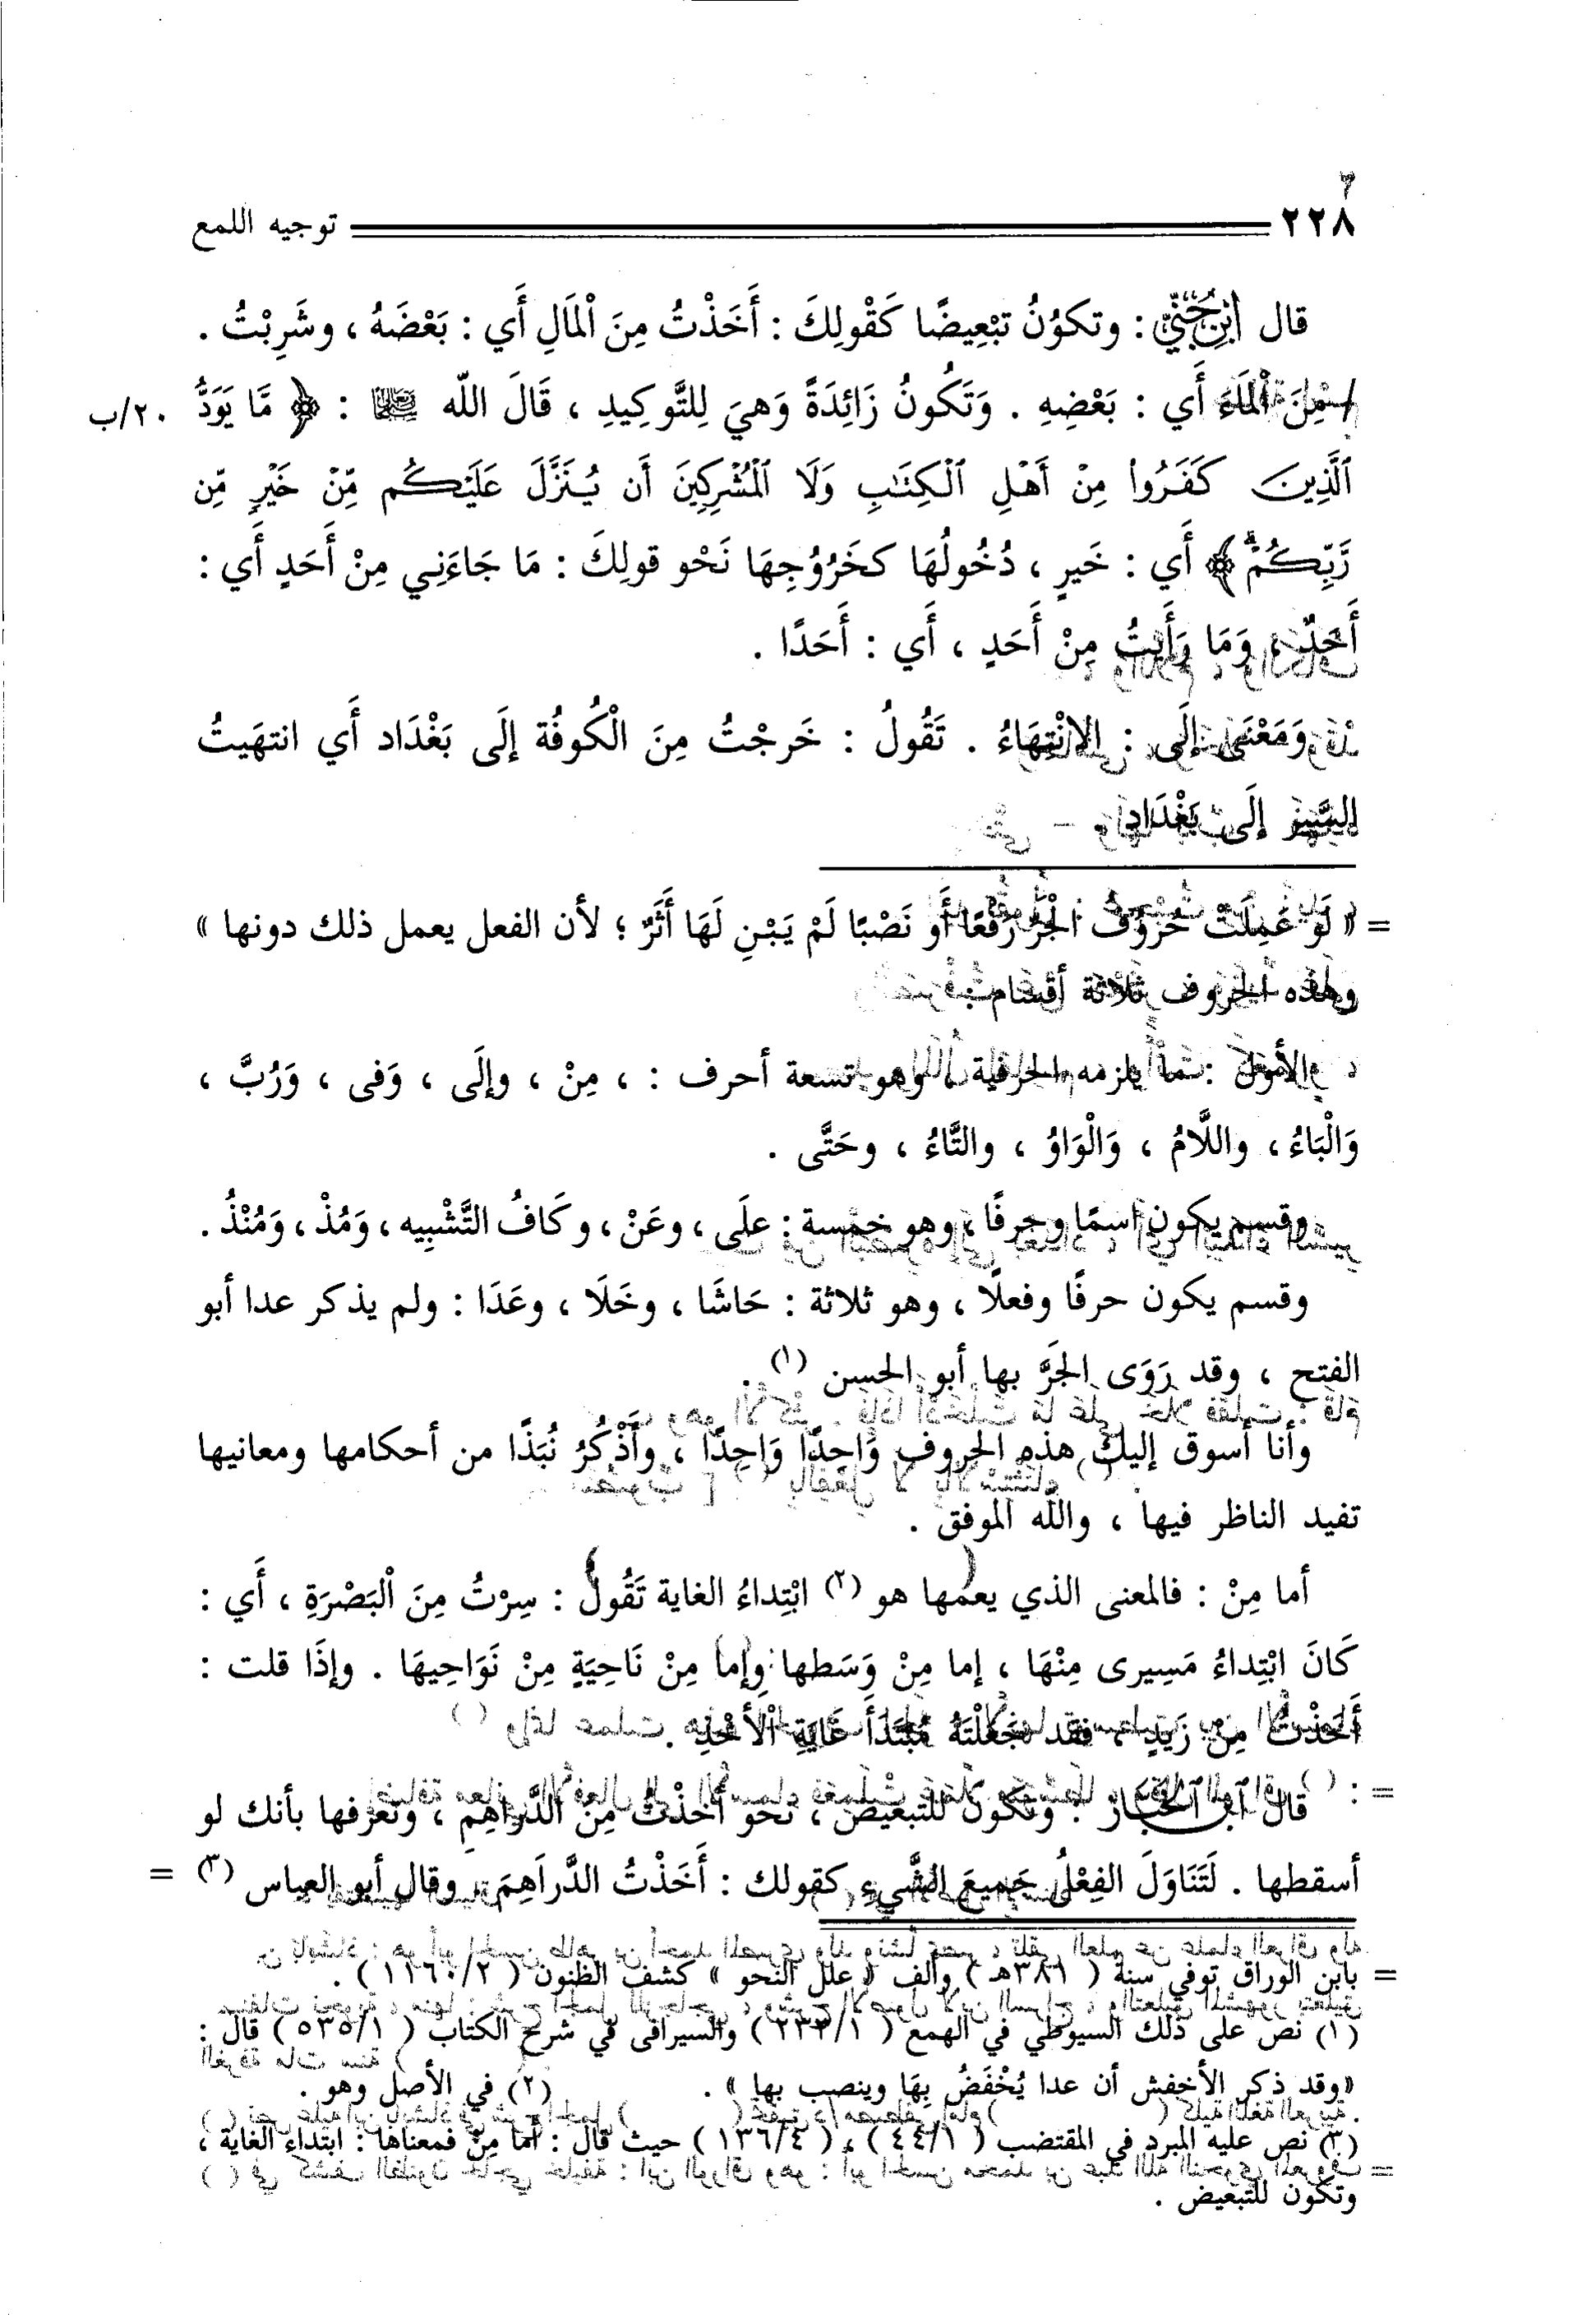 ٢٢٨ توجيه اللمع
قال ابن جني : وتكوُنُ تبْعِيضًا كَقْولِكَ : أَخَذْتُ مِنَ اْلمَالِ أَي : بَعْضَهُ ، وشَرِبْتُ .
/ مِنَ اْلمَاَءَ أَي : بَعْضِهِ . وَتَكُونُ زَائِدَةً وَهيَ لِلتَّوكِيدِ ، قَالَ اللّه تعالى : ﴿ مَّا يَوَدُّ ٢٠/ب
ٱلَّذِينَ كَفَرُوا۟ مِنْ أَهْلِ ٱلْكِتَـٰبِ وَلَا ٱلْمُشْرِكِينَ أَن يُنَزَّلَ عَلَيْكُم مِّنْ خَيْرٍ مِّن
رَّبِّكُمْ ﴾ أَي : خَيرٍ ، دُخُولُهَا كخَرُوُجِهَا نَحْو قولِكَ : مَا جَاءَنِي مِنْ أَحَدٍ أَي :
أَحَدٌ ، وَمَا رَأَيتُ مِنْ أَحَدٍ ، أَي : أَحَدًا .
وَمَعْنَى إلَى : الاِنْتِهَاءُ . تَقُولُ : خَرجْتُ مِنَ الْكُوفُة إلَى بَغْدَاد أَي انتهَيتُ
السَّيرَ إلَى بَغْدَادِ .
= « لَو عَمِلَتْ حُرُوُف الْجَرِّ رَفْعًا أَو نَصْبًا لَمْ يَبْـنِ لَهَا أَثَرٌ ؛ لأن الفعل يعمل ذلك دونها »
وهذه الحروف ثلاثة أقسام :
الأول : ما يلزمه الحرفية ، وهو تسعة أحرف : ، مِنْ ، وإلَى ، وَفى ، وَرُبَّ ،
وَالْبَاءُ ، واللَّامُ ، وَالْوَاوُ ، والتَّاءُ ، وحَتَّى .
وقسم يكون اسمًا وحرفًا ، وهو خمسة : علَى ، وعَنْ ، وكَافُ التَّشْبِيه ، وَمُذْ ، وَمُنْذُ .
وقسم يكون حرفًا وفعلًا ، وهو ثلاثة : حَاشَا ، وخَلَا ، وعَدَا : ولم يذكر عدا أبو
الفتح ، وقد رَوَى الجَرَّ بها أبو الحسن (١) .
وأنا أسوق إليك هذه الحروف وَاحِدًا وَاحِدًا ، وأَذْكُرُ نُبَذًا من أحكامها ومعانيها
تفيد الناظر فيها ، واللّه الموفق .
أما مِنْ : فالمعنى الذي يعمها هو (٢) ابْتِداءُ الغاية تَقُولُ : سِرْتُ مِنَ اْلبَصْرَةِ ، أَي :
كَانَ ابْتِداءُ مَسِيرى مِنْهَا ، إما مِنْ وَسَطها وإما مِنْ نَاحِيَةٍ مِنْ نَوَاحِيهَا . وإذَا قلت :
أَخَذْتُ مِنْ زَيدٍ ، فقد جَعَلْتَهُ مُبْتَدَأَ غَايَةِ اْلأَخْذِ .
قال ابن الخباز : وتكون للتبعيض ، نحو أخذْتُ مِنَ الدَّراهِمِ ، وتعرفها بأنك لو
أسقطها . لَتَنَاوَلَ الفِعْلُ جَمِيعَ الشَّيءِ كقولك : أَخَذْتُ الدَّراَهِمَ ، وقال أبو العباس (٣) =
= بابن الوراق توفي سنة ( ٣٨١هـ ) وألف « علل النحو » كشف الظنون ( ١١٦٠/٢ ) .
(١) نص على ذلك السيوطي في الهمع ( ٢٣٣/١ ) والسيرافى في شرح الكتاب ( ٥٣٥/١ ) قال :
«وقد ذكر الأخفش أن عدا يُخْفَضُ بِهَا وينصب بها » . (٢) في الأصل وهو .
(٣) نص عليه المبرد في المقتضب ( ٤٤/١ ) ، ( ١٣٦/٤ ) حيث قال : أما مِنْ فمعناها : ابتداء الغاية ،
وتكون للتبعيض .